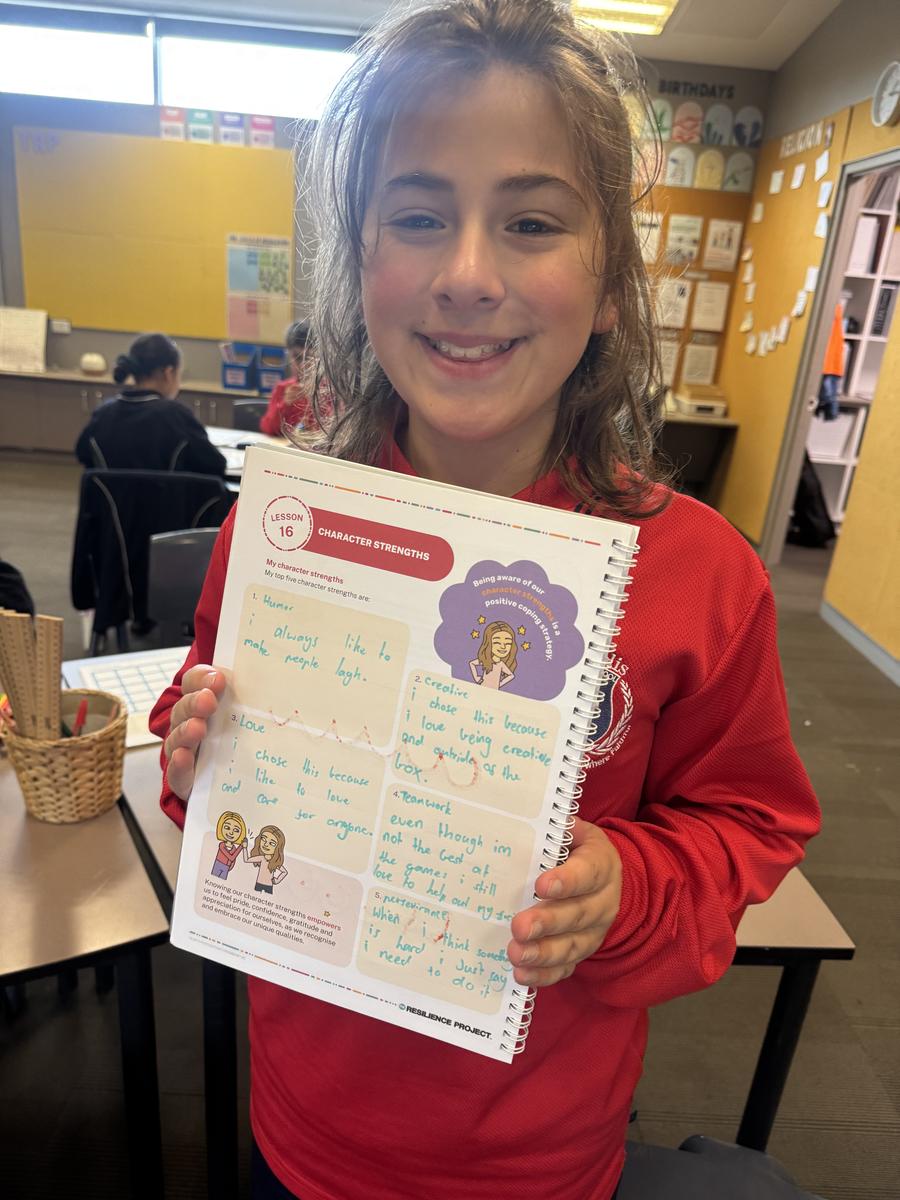 BIRTHDAYS
RELIGION
LESSON
16
CHARACTER STRENGTHS
My character strengths
My top five character strengths are:
Being aware of our
character strengths is a
positive coping strategy.
1. Humor
i always like to
make people lagh.
2. Creative
i chose this because
i love being creative
and outside of the
box.
3. Love
i chose this because
i like to love
and care for anyone.
4. Teamwork
even though im
not the best at
the games i still
love to help out my
5. perseverance
When i think
is hard i Just say
i need to do it
Knowing our character strengths empowers
us to feel pride, confidence, gratitude and
appreciation for ourselves, as we recognise
and embrace our unique qualities.
THE RESILIENCE PROJECT.